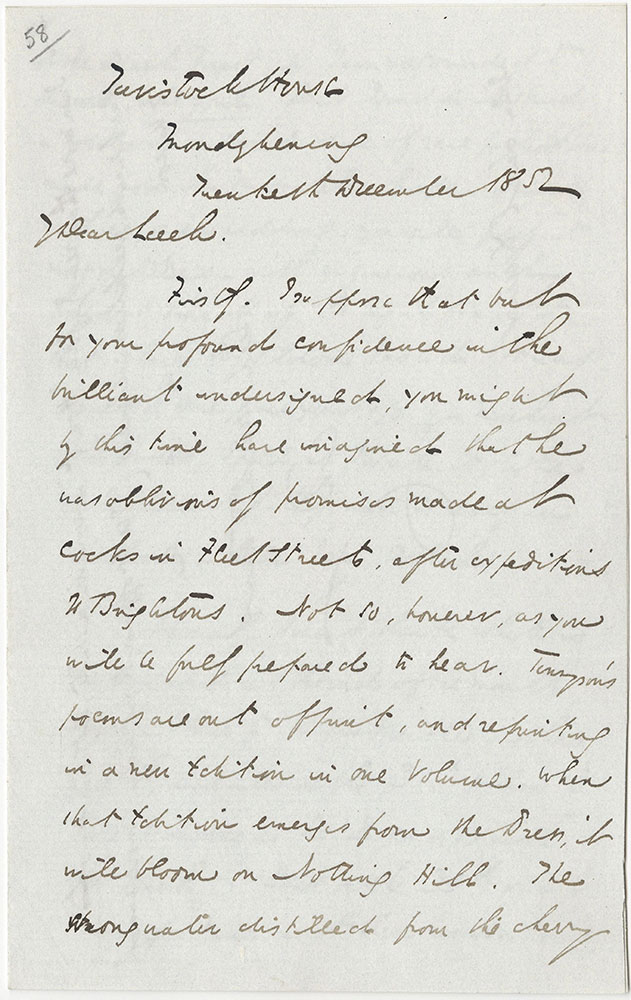 58
Tavistock House
Monday Evening
Twentieth December 1852
My Dear Leech.
First. I suppose that but
for your profound confidence in the
brilliant undersigned, you might
by this time have imagined that he
was oblivious of promises made at
Cocks in Fleet Street, after expeditions
to Brightons. Not so, however, as you
will be fully prepared to hear. Tennyson's
poems are out of print, and reprinting
in a new Edition in one Volume. When
that Edition emerges from the Press, it
will bloom on Notting Hill. The
strong water distilled from the cherry